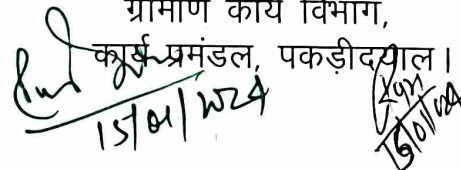 ग्रामीण कार्य विभाग,
कार्य प्रमंडल, पकड़ीदयाल।
15/01/2024
15/01/024